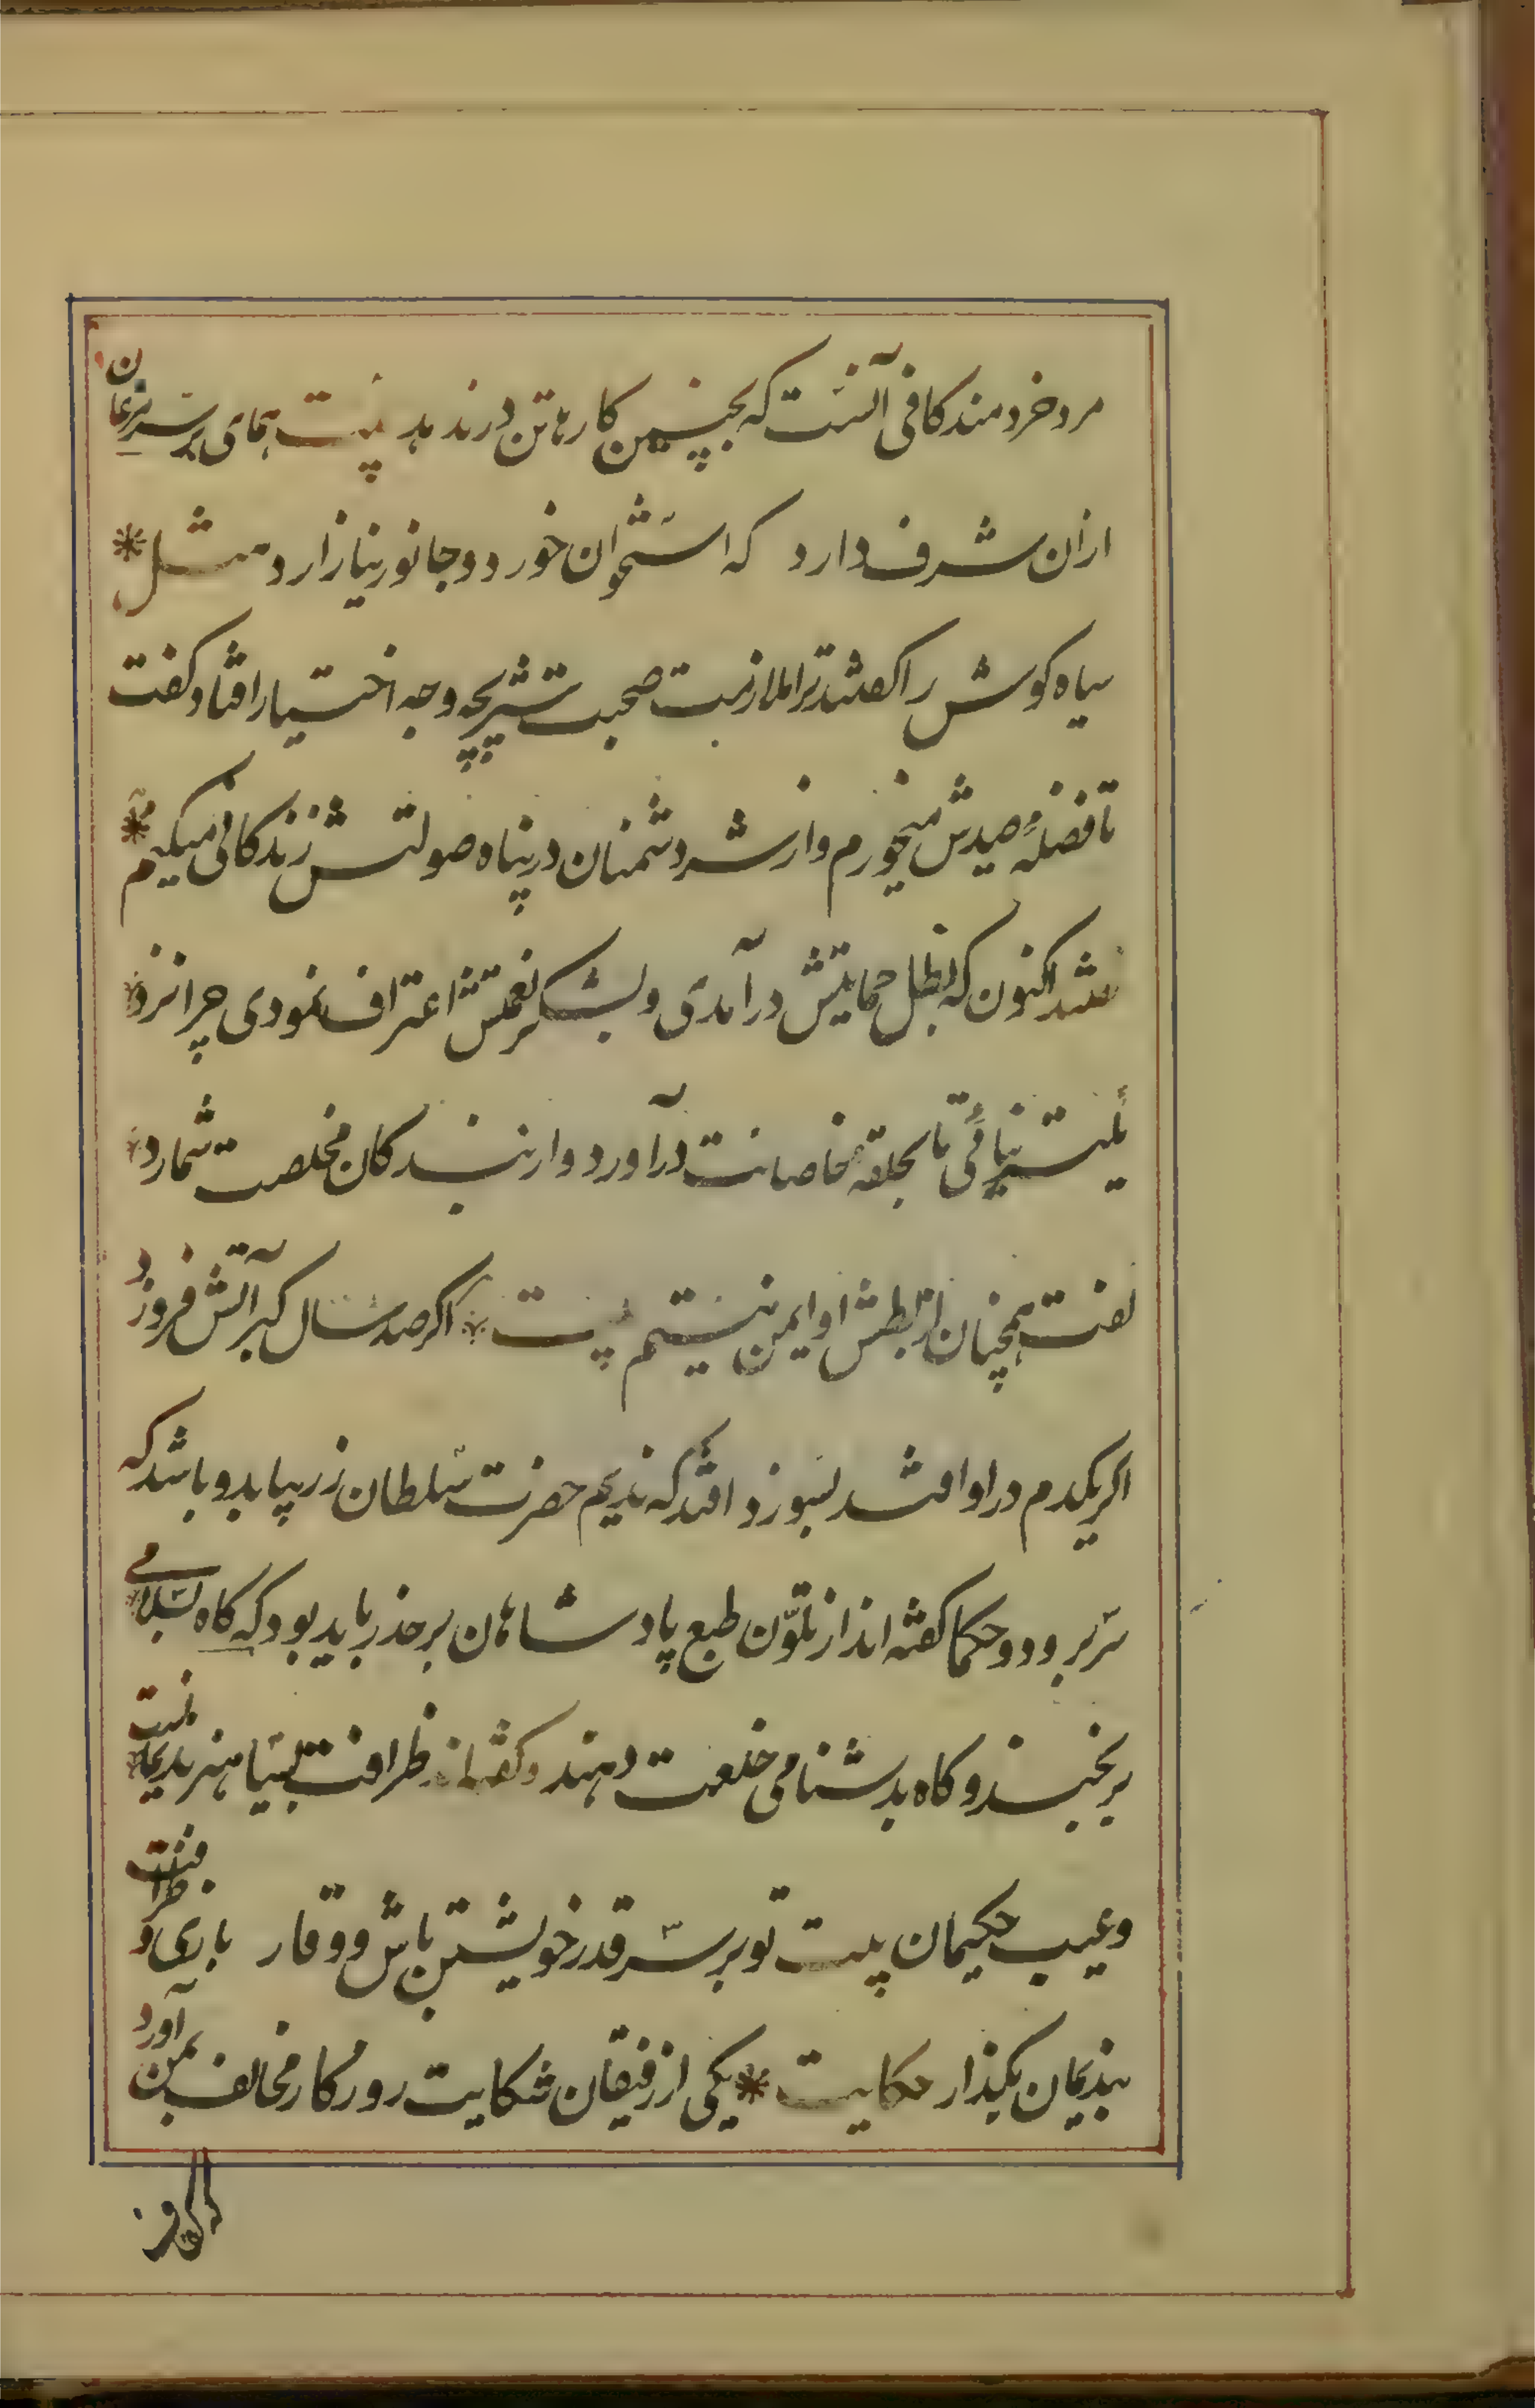 مرد خردمند کافی آنست که بچنین کارها تن درندهد بیت همای بر سر مرغان
ازان شرف دارد که استخوان خورد و جانور نیازارد مثل *
سیاه کوش را کفتند ترا ملازمت صحبت شیر بچه وجه اختیار افتاد کفت
تا فضلهٔ صیدش میخورم و از شر دشمنان در پناه صولتش زندکانی میکنم *
کفتند اکنون که بظل حمایتش درآمدی و بشکر نعمتش اعتراف نمودی چرا نزد
یکتر نیائی تا بحلقه خاصانت درآورد و از بندکان مخلصت شمارد
کفت همچنان از بطش او ایمن نیستم بیت * اکر صد سال کبر آتش فروزد
اکر یکدم در او افتد بسوزد افتد که ندیم حضرت سلطان زر بیابد و باشد که
سر برود و حکما کفته اند از تلوّن طبع پادشاهان بر حذر باید بود که کاه بسلامی
برنجند و کاه بدشنامی خلعت دهند و کفته اند ظرافت بسیار هنر ندیمانست
و عیب حکیمان بیت تو بر سر قدر خویشتن باش و وقار بازی و ظرافت
بندیمان بکذار حکایت * یکی از رفیقان شکایت روزکار مخالف بمن آورد